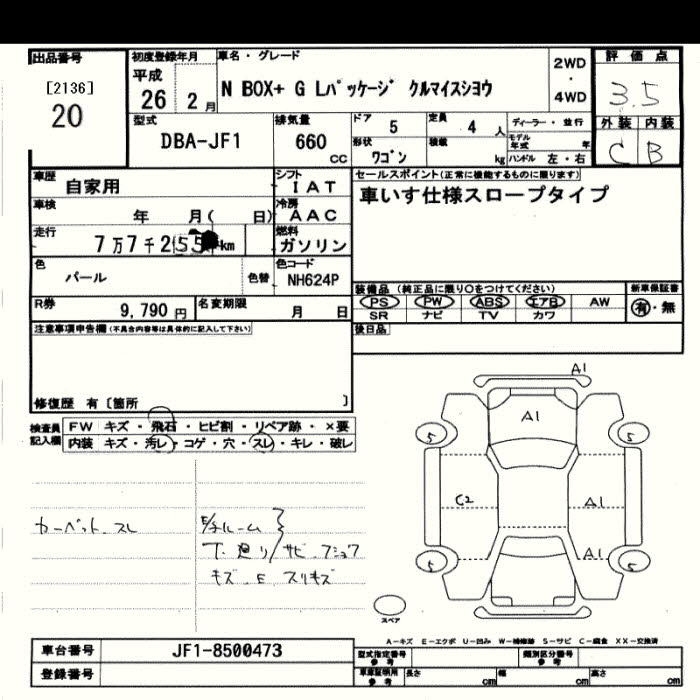 出品番号
[2136]
20
初度登録年月
平成
26 2 月
車名・グレード
N BOX+ G Lパッケージ クルマイスシヨウ
2WD
・
4WD
評価点
3.5
外装 内装
C B
型式
DBA-JF1
排気量
660
CC
ドア 5
定員 4 人
形状 ワゴン
積載 kg
ディーラー・並行
モデル年式 年
ハンドル 左・右
車歴 自家用
シフト IAT
車検 年 月( 日)
冷房 AAC
走行 7万7千255km
燃料 ガソリン
色 パール
色替
色コード NH624P
R券 9,790 円
名変期限 月 日
セールスポイント(正常に機能するものに限ります)
車いす仕様スロープタイプ
装備品(純正品に限り○をつけてください)
新車保証書
PS PW ABS エアB AW
有・無
SR ナビ TV カワ
後日品
注意事項申告欄(不具合内容等は具体的に記入して下さい)
修復歴 有[箇所 ]
検査員記入欄
FW キズ・飛石・ヒビ割・リペア跡・×要
内装 キズ・汚レ・コゲ・穴・スレ・キレ・破レ
カーペット スレ
E/チルーム
下廻り/サビ
キズ.E スリキズ
A1
A1
5 5
C2 A1
A1
5 5
スペア
A-キズ E-エクボ U-凹み W-補修跡 S-サビ C-腐食 XX-交換済
車台番号 JF1-8500473
登録番号
型式指定番号 参考
類別区分番号 参考
車庫証明用 参考
長さ cm 幅 cm 高さ cm